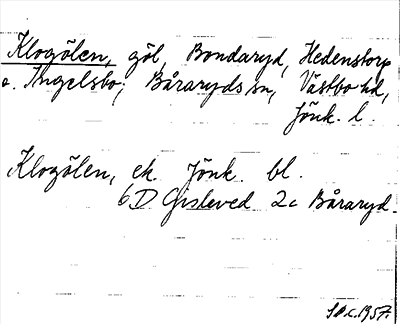 Klogölen, göl, Bondaryd, Hedenstorp
o. Ingelsbo, Båraryds sn, Västbo hd,
Jönk. l.
Klogölen, ek. Jönk. bl.
6D Gislaved 2c Båraryd.
1957.